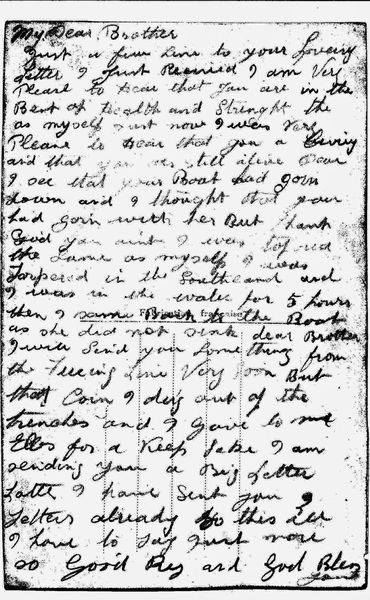 My Dear Brother
Just a few line to your loveing
letter I Just Received I am Very
Pleast to Hear that you are in the
Best of Health and Strenght the
as myself Just now I was Very
Please to Hear that you a
and that you are still alive Dear
I see that your Boat had gorn
down and I thought that you
had gorn with her But thank
God you aint I was
the Same as myself I was
in the Southland and
I was in the water for 5 hours
then I Back to the Boat
as she did not sink dear Brother
I will Send you Something from
the Line Very Soon But
that Coin I dig out of the
trenches and I gave to
for a Keep Sake I am
sending you a Big Letter
I have Sent you 9
Letters already so this
I have to Say Just now
so Good Bey and God Bless